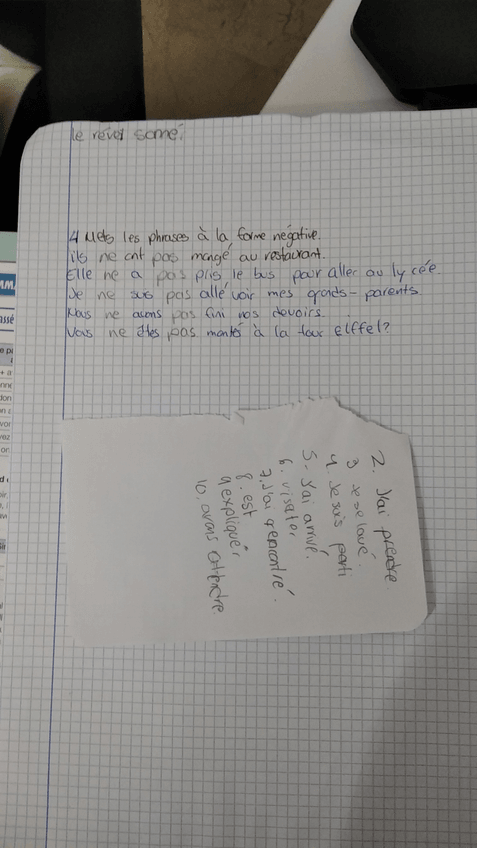 le revei somé.
4 Mets les phrases à la forme négative.
ils ne ont pas mangé au restaurant.
Elle ne a pas pris le bus pour aller au lycée
Je ne suis pas allé voir mes grads-parents
Nous ne avons pas fini nos devoirs.
Vous ne êtes pas montés à la tour eiffel?
2. J'ai prendre
3 Je se lavé.
4. Je suis parti
5. J'ai arrivé.
6. visator
7. J'ai rencontré.
8. est
9 expliquér
10. avons attendre